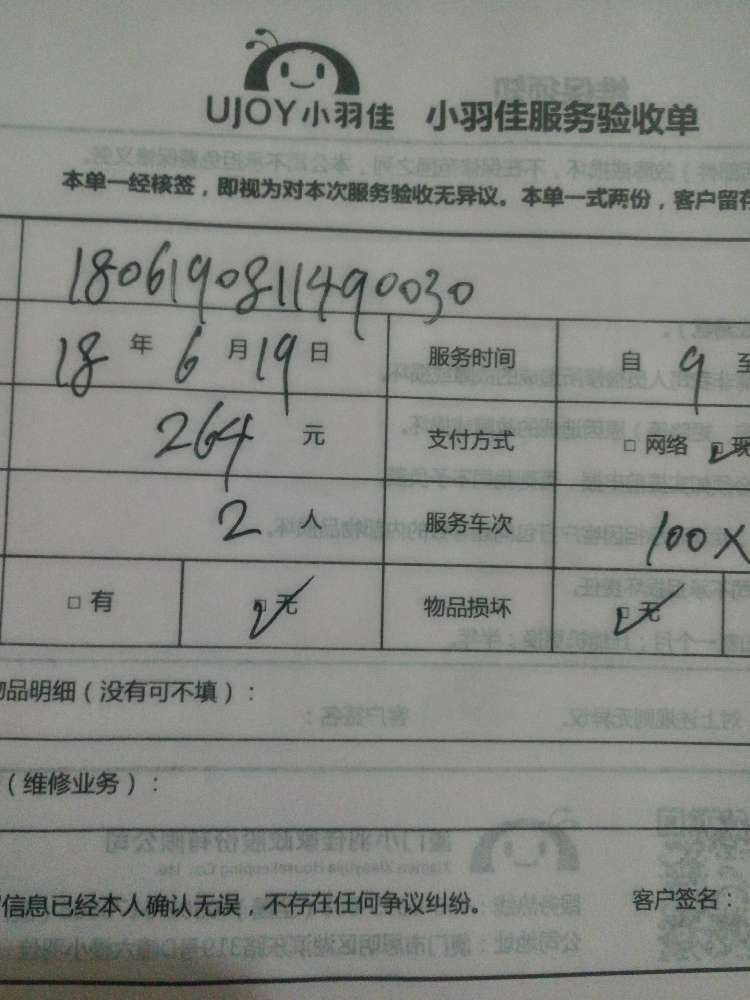 UJOY小羽佳 小羽佳服务验收单
本单一经核签，即视为对本次服务验收无异议。本单一式两份，客户留存
1806190811490030
18 年 6 月 19 日 服务时间 自 9 至
264 元 支付方式 □ 网络 □ 现
2 人 服务车次 100X
□ 有 □ 无 物品损坏 □ 无
物品明细（没有可不填）：
（维修业务）：
信息已经本人确认无误，不存在任何争议纠纷。 客户签名：